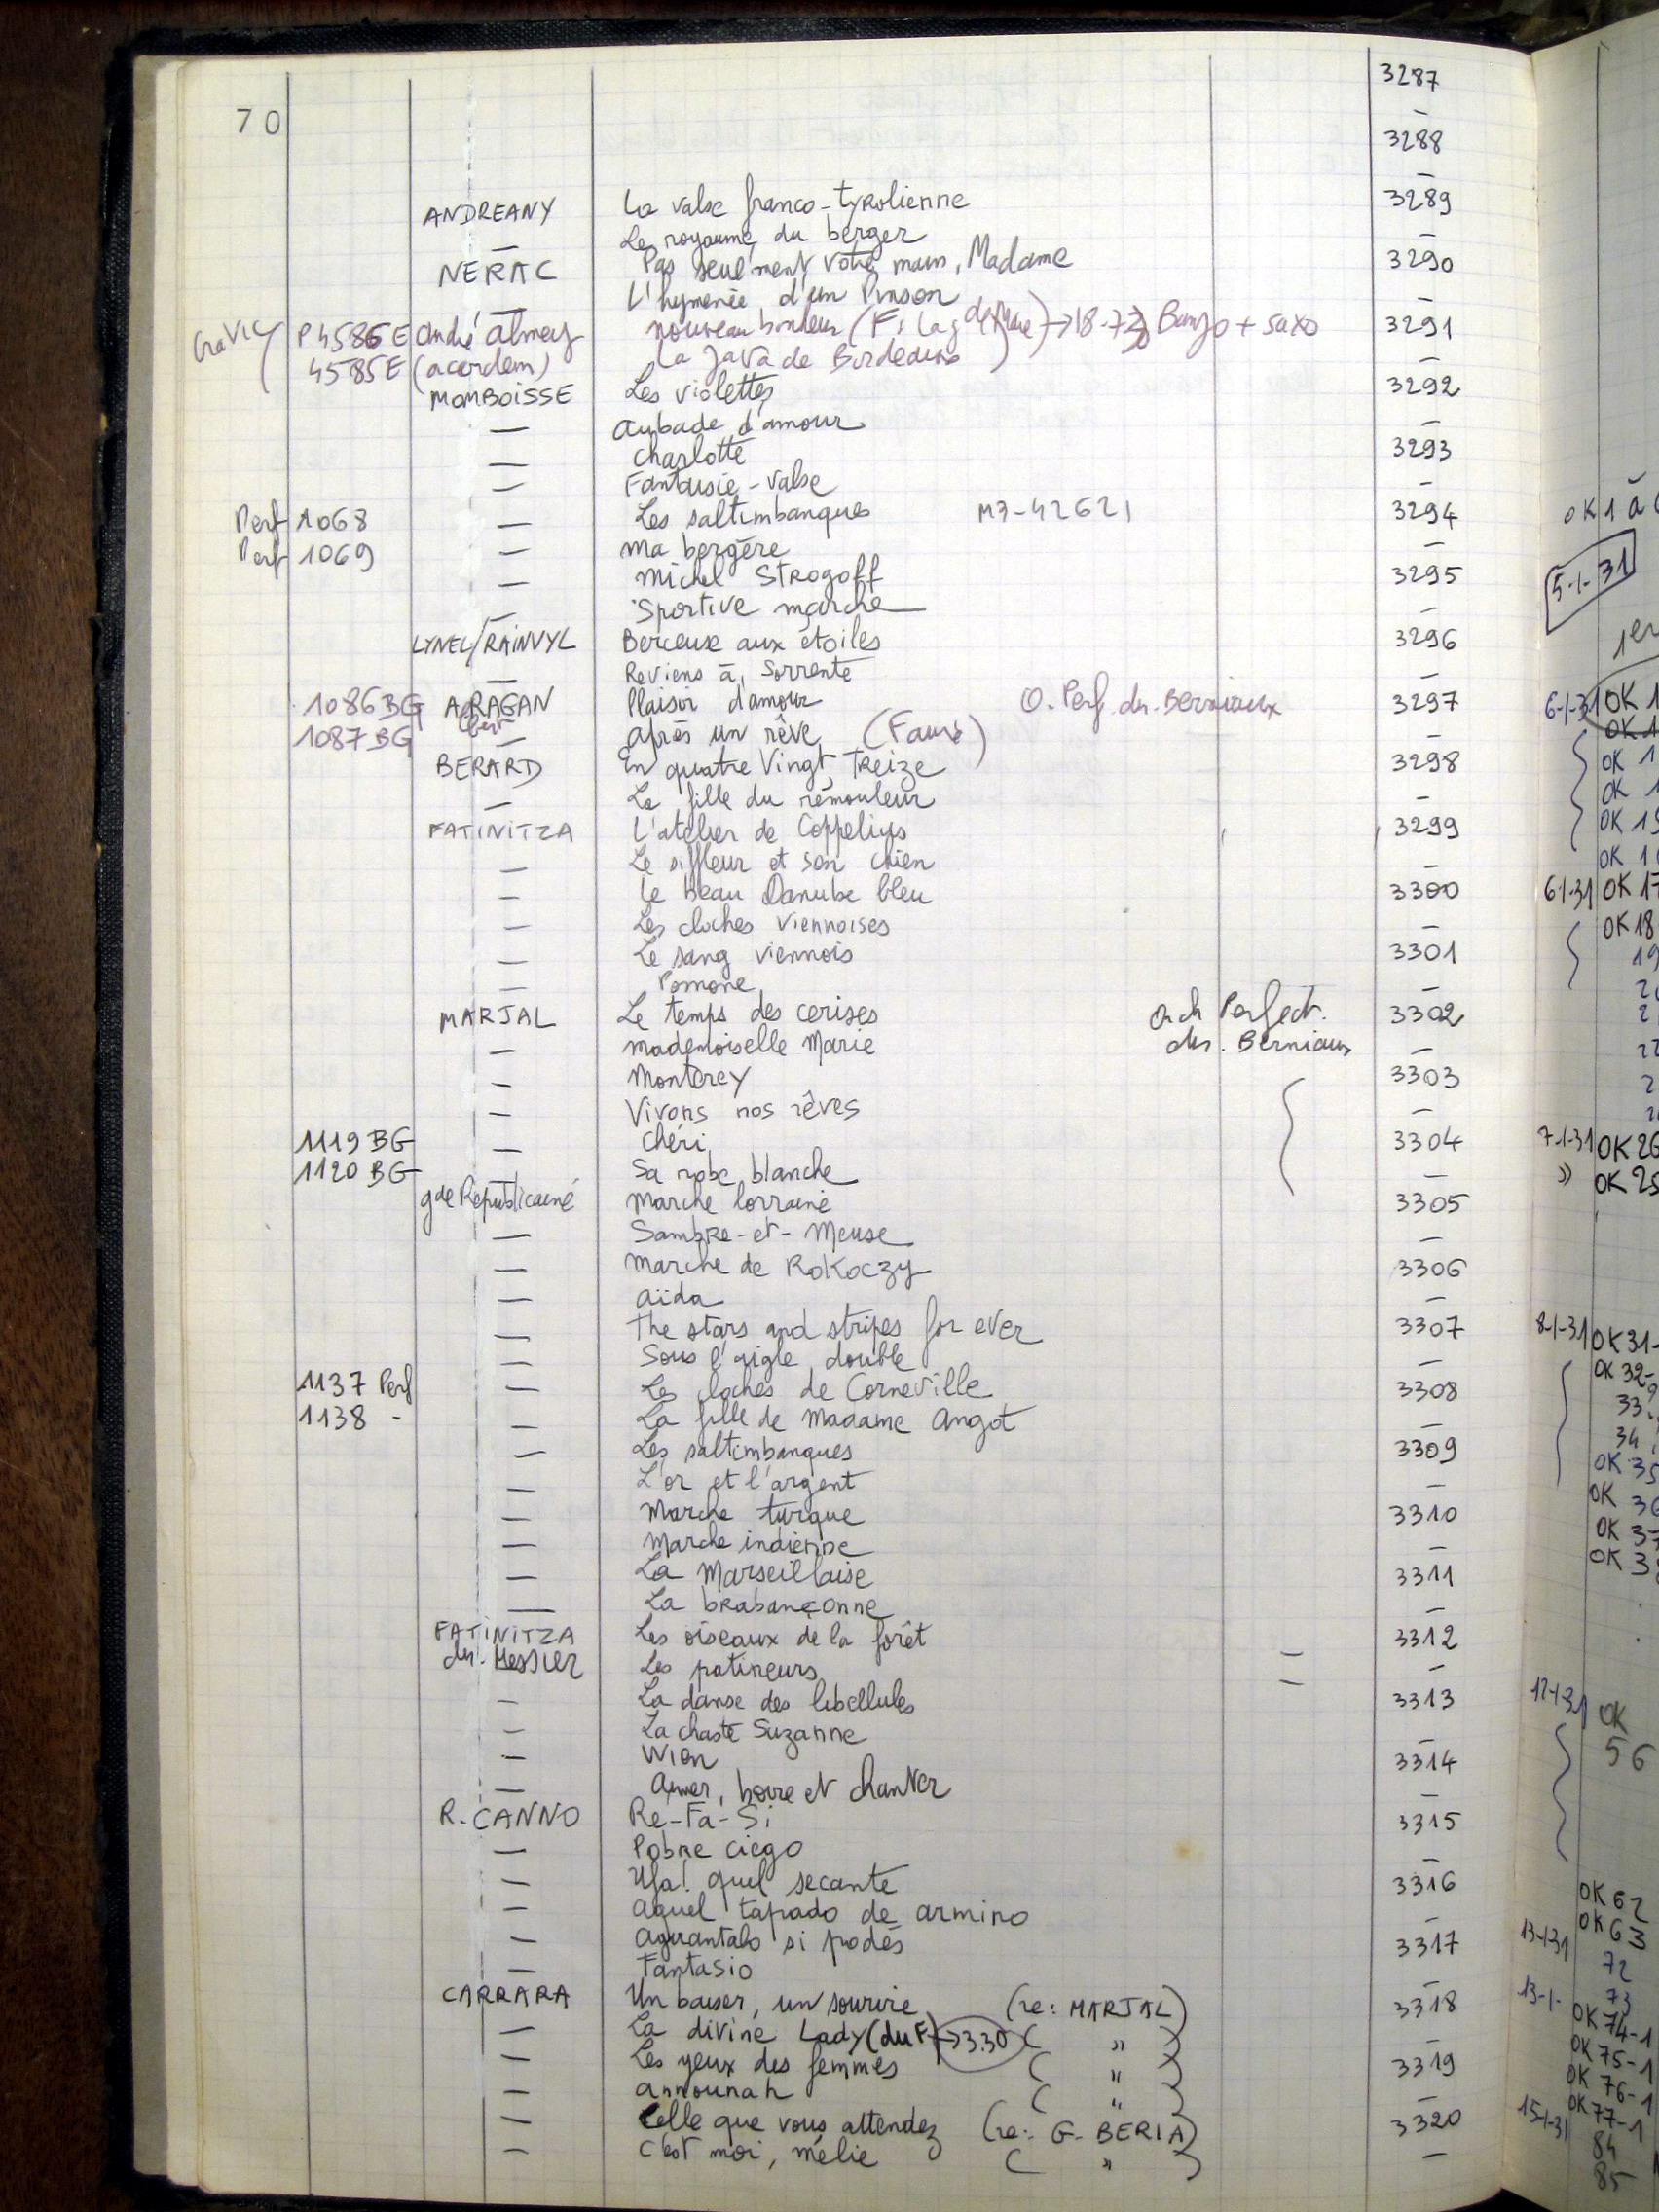 70
3287
—
3288
—
ANDREANY La valse franco-tyrolienne 3289
— Le royaume du berger —
NERAC Pas seul'ment votre main, Madame 3290
— L'hymenée d'un Pinson —
P4586E André nouveau bonheur (F: → 18-7 Banjo + saxo 3291
4585E (acordeon) La Java de Bordeaux —
MOMBOISSE Les violettes 3292
— Aubade d'amour —
— Charlotte 3293
— Fantaisie-valse —
Perf 1068 — Les saltimbanques M7-42621 3294
Perf 1069 — Ma bergère —
— Michel Strogoff 3295
— Sportive marche —
LYNEL/RAINVYL Berceuse aux étoiles 3296
— Reviens à Sorrente —
1086 BG ARAGAN Plaisir d'amour O. Perf. dir. Berniaux 3297
1087 BG — après un rêve (Fauré) —
BERARD En quatre Vingt Treize 3298
— La fille du rémouleur —
FATINITZA L'atelier de Coppelius 3299
— Le siffleur et son chien —
— Le beau Danube bleu 3300
— Les cloches viennoises —
— Le sang viennois 3301
— Pomone —
MARJAL Le temps des cerises Orch Perfect. 3302
— Mademoiselle Marie dir. Berniaux —
— Monterey 3303
— Vivons nos rêves —
1119 BG — Chéri 3304
1120 BG — Sa robe blanche —
gde Républicaine Marche lorraine 3305
— Sambre-et-Meuse —
— Marche de Rokoczy 3306
— Aïda —
— The stars and stripes for ever 3307
— Sous l'aigle double —
1137 Perf — Les cloches de Corneville 3308
1138 - — La fille de Madame Angot —
— Les saltimbanques 3309
— L'or et l'argent —
— Marche turque 3310
— Marche indienne —
— La Marseillaise 3311
— La brabançonne —
FATINITZA Les oiseaux de la forêt — 3312
dir. Messier Les patineurs — —
— La danse des libellules 3313
— La chaste Suzanne —
— Wien 3314
— Aimer, boire et chanter —
R. CANNO Re-Fa-Si 3315
— Pobre ciego —
— Ufa! quel secante 3316
— Aquel tapado de armino —
— Aguantalo si podés 3317
— Fantasio —
CARRARA Un baiser, un sourire (re: MARJAL) 3318
— La divine Lady (du F) → 3.30 ( " ) —
— Les yeux des femmes ( " ) 3319
— announah ( " ) —
— Celle que vous attendez (re: G. BERIA) 3320
— C'est moi, mélie ( " ) —
5-1-31
6-1-31
6-1-31 OK 17
OK 18
7-1-31 OK 26
" OK 25
8-1-31 OK 31
OK 32-
33
34
OK 35
OK 36
OK 37
12-1-31 OK
56
OK 62
OK 63
13-1-31 72
13-1- 73
OK 74-1
OK 75-1
OK 76-1
OK 77-1
15-1-31 84
85